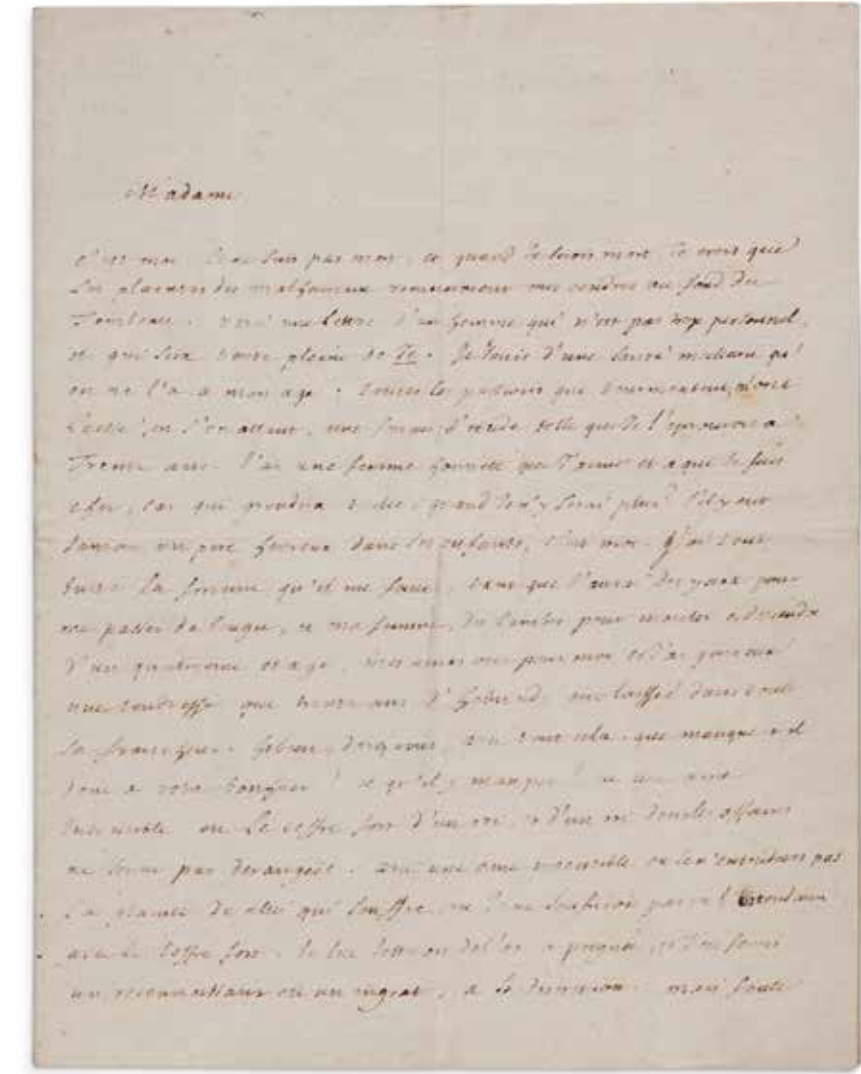 Madame
C'est moi. Je ne suis pas mort, et quand je serois mort, je crois que
les plaintes des malheureux remueroient mes cendres au fond du
Tombeau. Voici une lettre d'un homme qui n'est pas trop personnel,
et qui sera toute pleine de Je. Je jouis d'une santé meilleure qu'
on ne l'a à mon age. Toutes les passions qui tourmentent, m'ont
laissé, en s'en allant, une fureur d'étude telle que je l'eprouvois a
Trente ans. J'ai une femme honnete que j'aime et a qui je suis
cher, car qui grondra t elle, quand je n'y serai plus? S'il y eut
jamais un pere heureux dans ses enfants, c'est moi. J'ai tout
juste la fortune qu'il me faut, tant que j'aurai des yeux pour
me passer de bougie, et ma femme, des jambes pour monter et descendre
d'un quatrieme etage. Mes amis ont pour moi et j'ai pour eux
une tendresse que trente ans d'habitude ont laissée dans toute
sa fraicheur. Eh bien, direz vous, avec tout cela, que manque t il
donc a votre bonheur? ce qu'il y manque? ou une ame
insensible ou le coffre fort d'un roi, et d'un roi dont les affaires
ne soient pas derangées. Avec une ame insensible ou je n'entendrois pas
la plainte de celui qui souffre, ou je ne souffrirois pas en l'entendant
avec le coffre fort, je lui jetterois de l'or a poignée, et j'en ferois
un reconnoissant ou un ingrat, a sa discretion. Mais faute